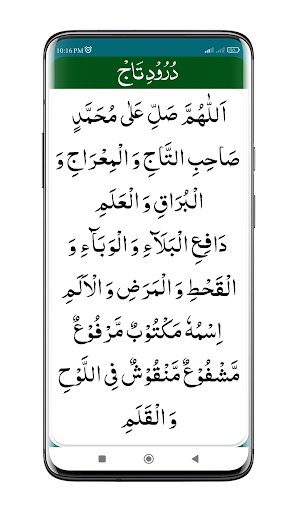 10:16 PM
دُرُوْدِ تَاجْ
اَللّٰهُمَّ صَلِّ عَلٰى مُحَمَّدٍ
صَاحِبِ التَّاجِ وَ الْمِعْرَاجِ وَ
الْبُرَاقِ وَ الْعَلَمِ
دَافِعِ الْبَلَآءِ وَ الْوَبَآءِ وَ
الْقَحْطِ وَ الْمَرَضِ وَ الْاَلَمِ
اِسْمُهٗ مَكْتُوْبٌ مَّرْفُوْعٌ
مَّشْفُوْعٌ مَّنْقُوْشٌ فِی اللَّوْحِ
وَ الْقَلَمِ